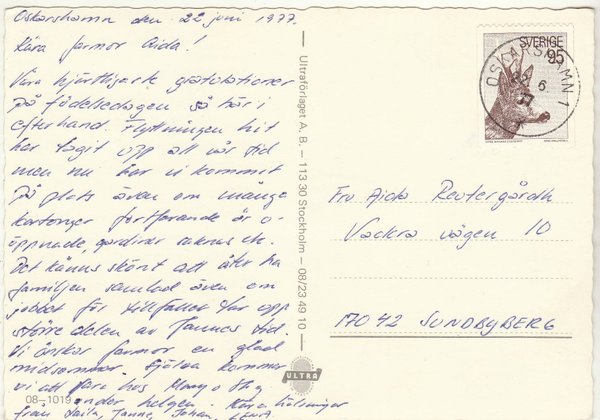 Oskarshamn den 22 juni 1977.
Kära farmor Aida!
Våra hjärtligaste gratulationer
på födelsedagen så här i
efterhand. Flyttningen hit
har tagit upp all vår tid
men nu har vi kommit
på plats även om många
kartonger fortfarande är o-
öppnade, gardiner saknas etc.
Det känns skönt att åter ha
familjen samlad även om
jobbet för tillfället tar upp
större delen av Jannes tid.
Vi önskar farmor en glad
midsommar. Själva kommer
vi att fara hos
under helgen. Kära hälsningar
från Laila, Janne, Johan,
08-1019
Ultraförlaget A. B. — 113 30 Stockholm — 08/23 49 10
ULTRA
SVERIGE
95
OSKARSHAMN 1
22 6
77
Fru Aida Reutergårdh
Vackra vägen 10
17042 SUNDBYBERG